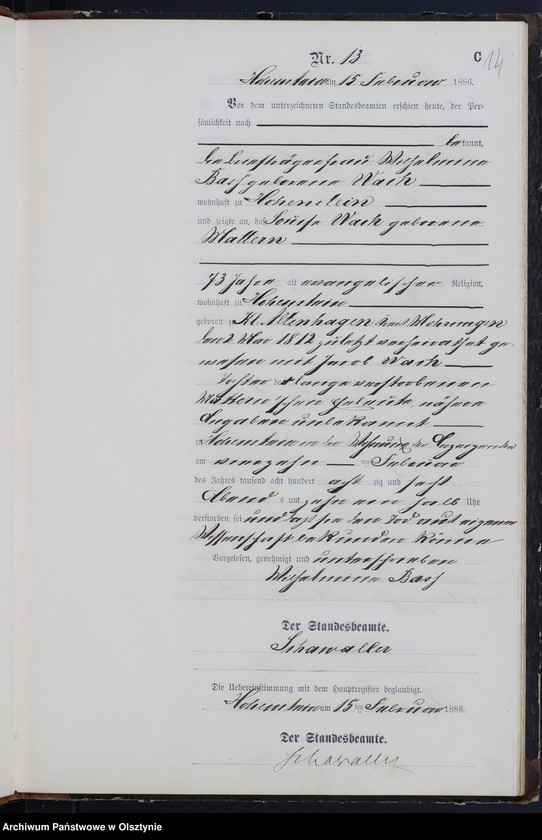 C 14
Nr. 13
Hohenstein am 15 Februar 1886.
Vor dem unterzeichneten Standesbeamten erschien heute, der Per-
sönlichkeit nach
bekannt,
die Briefträgerfrau Wilhelmine
geborene Wach
wohnhaft zu Hohenstein
und zeigte an, daß Louise Wach geborene
Mattern
73 Jahre alt evangelischer Religion,
wohnhaft zu Hohenstein
geboren zu Kl. Altenhagen Kreis Mohrungen
den 2 Mai 1812 zuletzt verheirathet ge-
wesen mit Jacob Wach
Tochter der lange verstorbenen
Mattern'schen Eheleute, nähere
Angaben unbekannt
zu Hohenstein in der Wohnung der Anzeigenden
am vierzehn ten Februar
des Jahres tausend acht hundert acht zig und sechs
Abends um zehn ein halb Uhr
verstorben sei und daß sie den Tod aus eigener
Wissenschaft bekunden könne
Vorgelesen, genehmigt und unterschrieben
Wilhelmine
Der Standesbeamte.
Schawaller
Die Uebereinstimmung mit dem Hauptregister beglaubigt.
Hohenstein am 15 ten Februar 1886.
Der Standesbeamte.
Schawaller
Archiwum Państwowe w Olsztynie